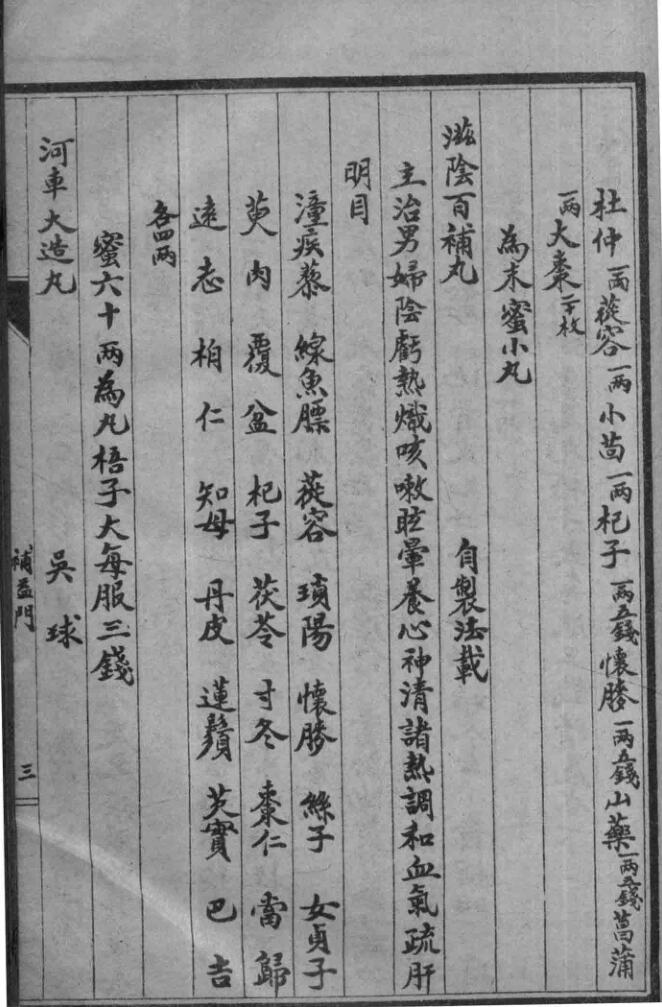 杜仲一兩蓯容一兩小茴一兩杞子一兩五錢懷膝一兩五錢山藥一兩五錢菖蒲
一兩大棗二十枚
為末蜜小丸
滋陰百補丸 自製法載
主治男婦陰虧熱熾咳嗽眩暈養心神清諸熱調和血氣疏肝
明目
潼疾藜 線魚膘 蓯容 瑣陽 懷膝 絲子 女貞子
萸肉 覆盆 杞子 茯苓 寸冬 棗仁 當歸
遠志 柏仁 知母 丹皮 蓮鬚 芡實 巴吉
各四兩
蜜六十兩為丸梧子大每服三錢
河車大造丸 吳球
補益門 三